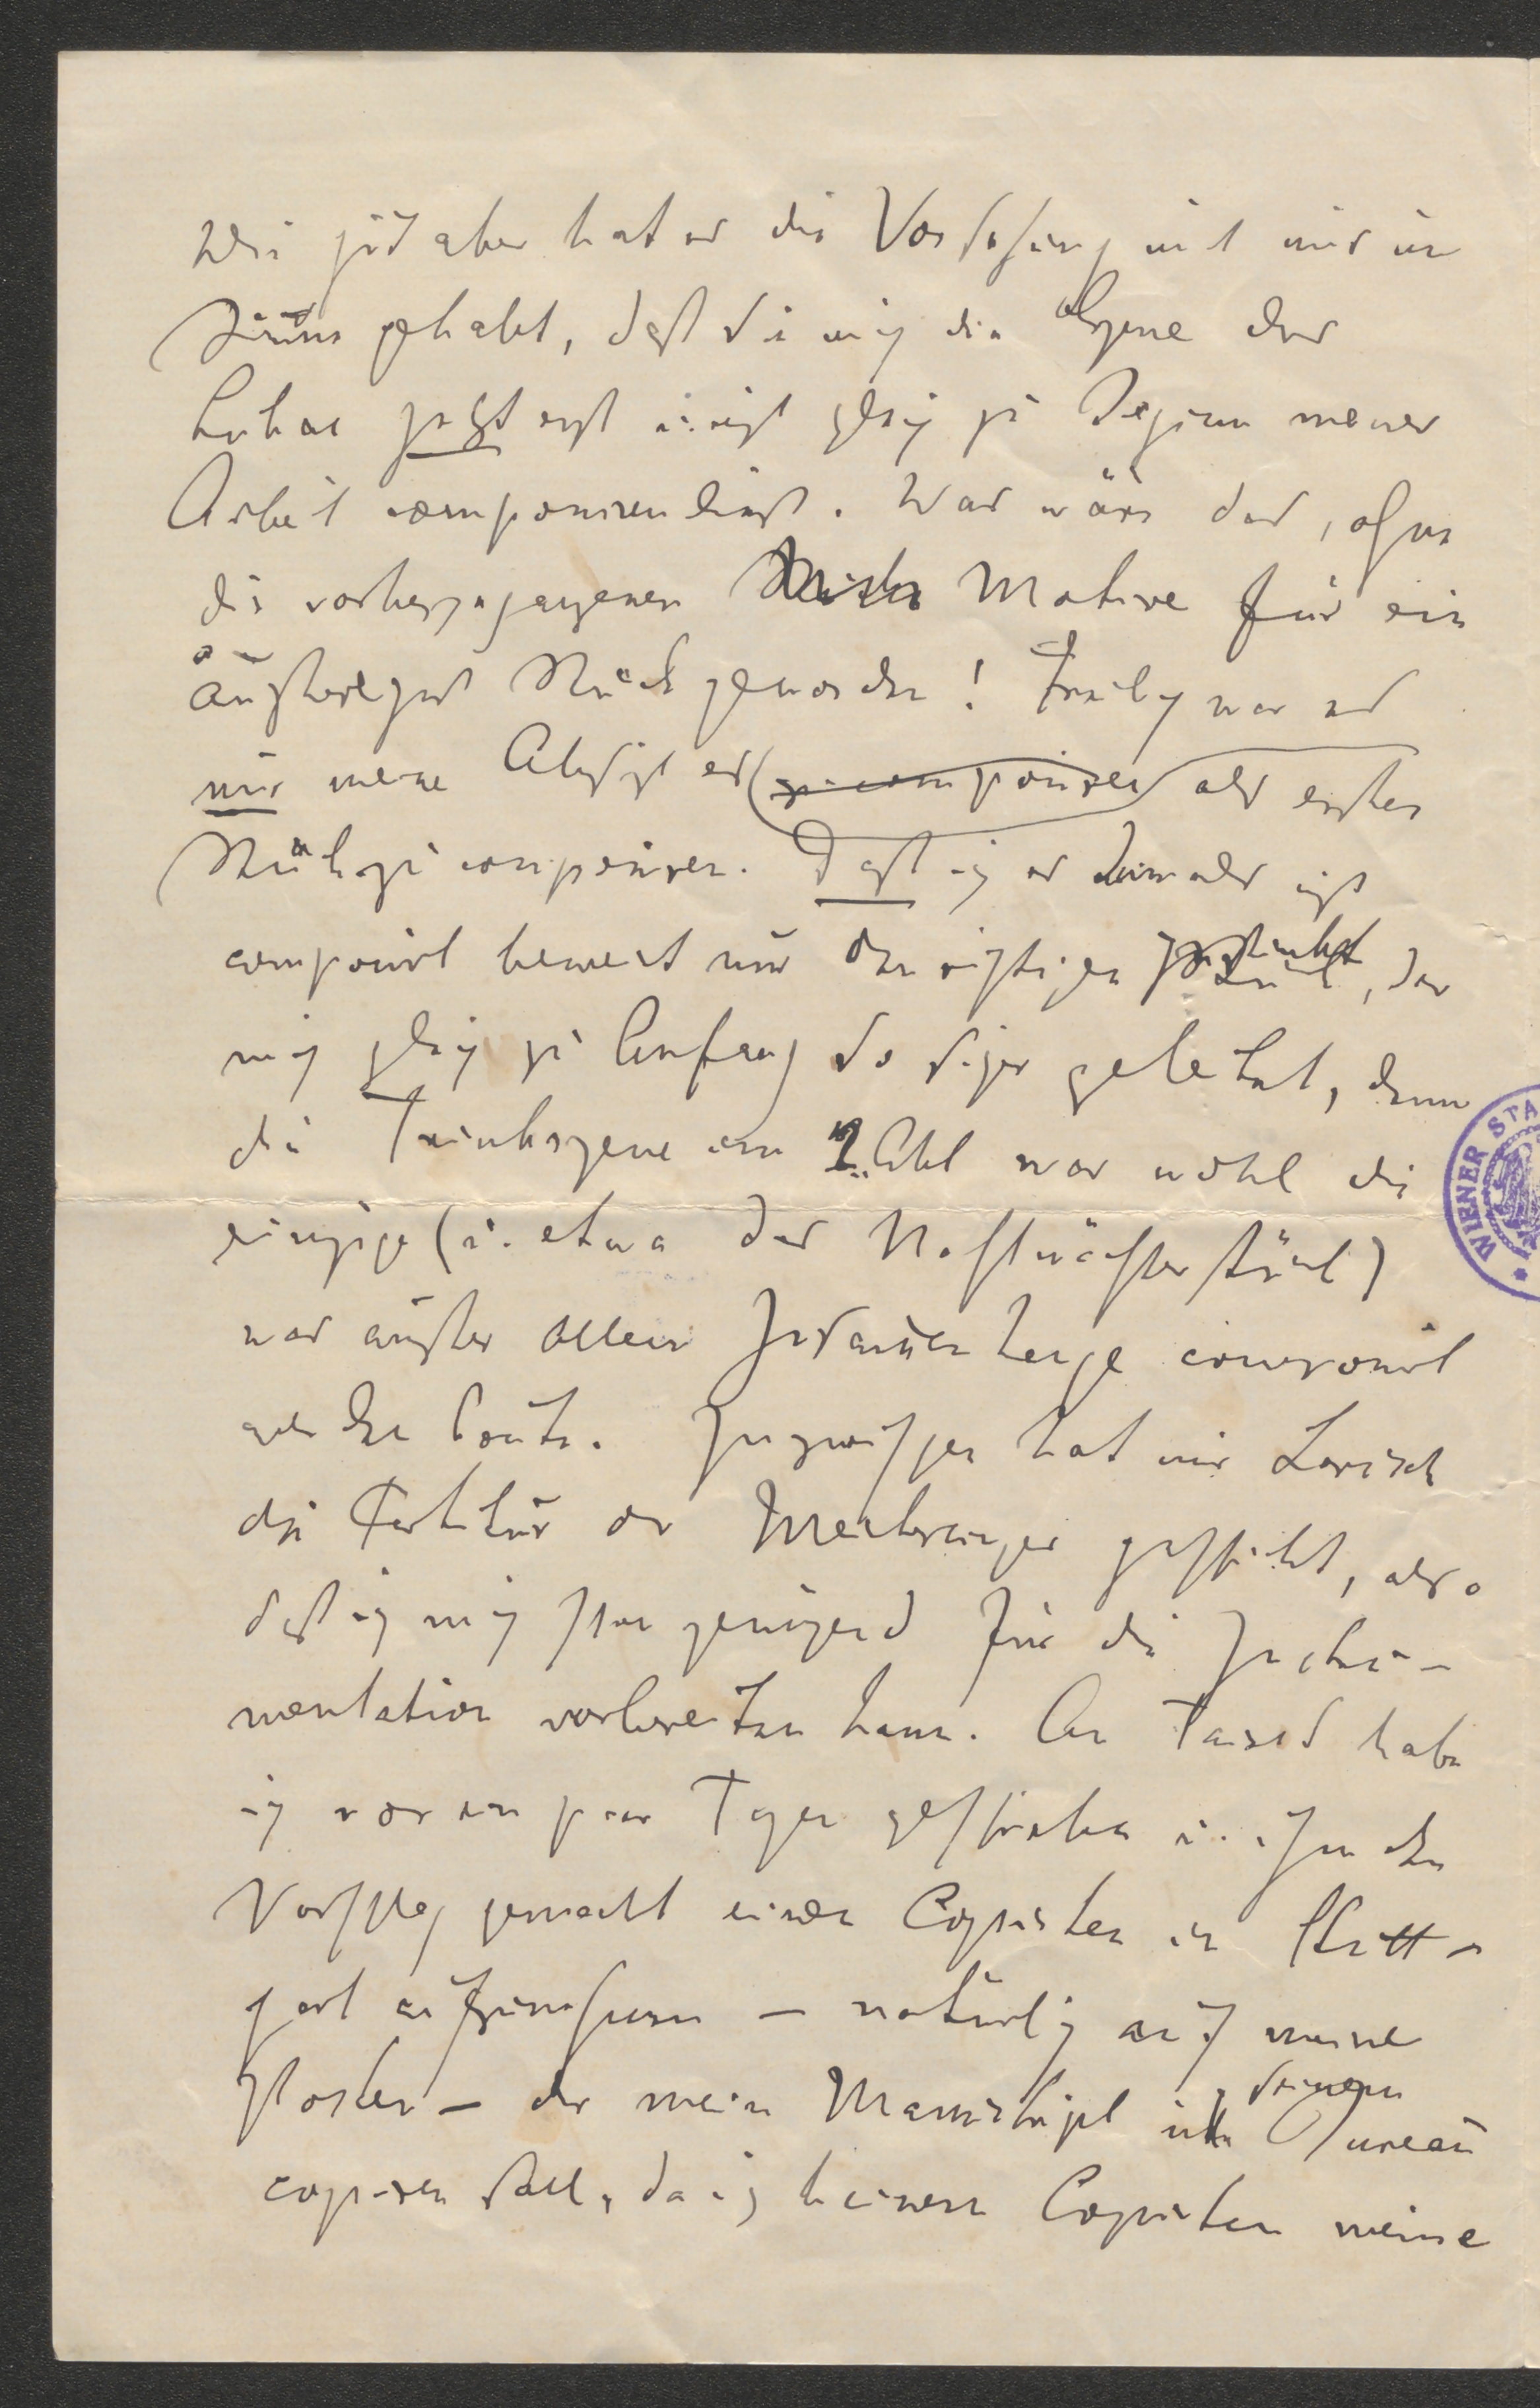 Wie gut aber hat es die Vorsehung mit mir im
Sinne gehabt, daß sie mich die Szene des
Lukas jetzt erst u. nicht gleich zu Beginn meiner
Arbeit componiren ließ. Was wäre das, ohne
die vorhergegangenen Motive für ein
Stück geworden! Freilich war es
nur meine Absicht es als erstes
Stück zu componiren. Daß ich es damals nicht
componirt beweist nur den richtigen Instinkt, der
mich gleich zu Anfang so sicher geleitet, denn
die Trinkszene im 2. Akt war wohl die
einzige (u. etwa das Nachtwächterstück)
was außer allem Zusammenhange componirt
werden konnte. Inzwischen hat mir Larisch
die Partitur der Meistersinger geschickt, also
daß ich mich schon genügend für die Instru-
mentation vorbereiten kann. An Faisst habe
ich vor ein paar Tagen geschrieben u. ihm den
Vorschlag gemacht einen Copisten in Stutt-
gart aufzunehmen – natürlich auf meine
Kosten – der mein Manuskript in seinem Bureau
copiren soll, da ich keinem Copisten meine
WIENER STA